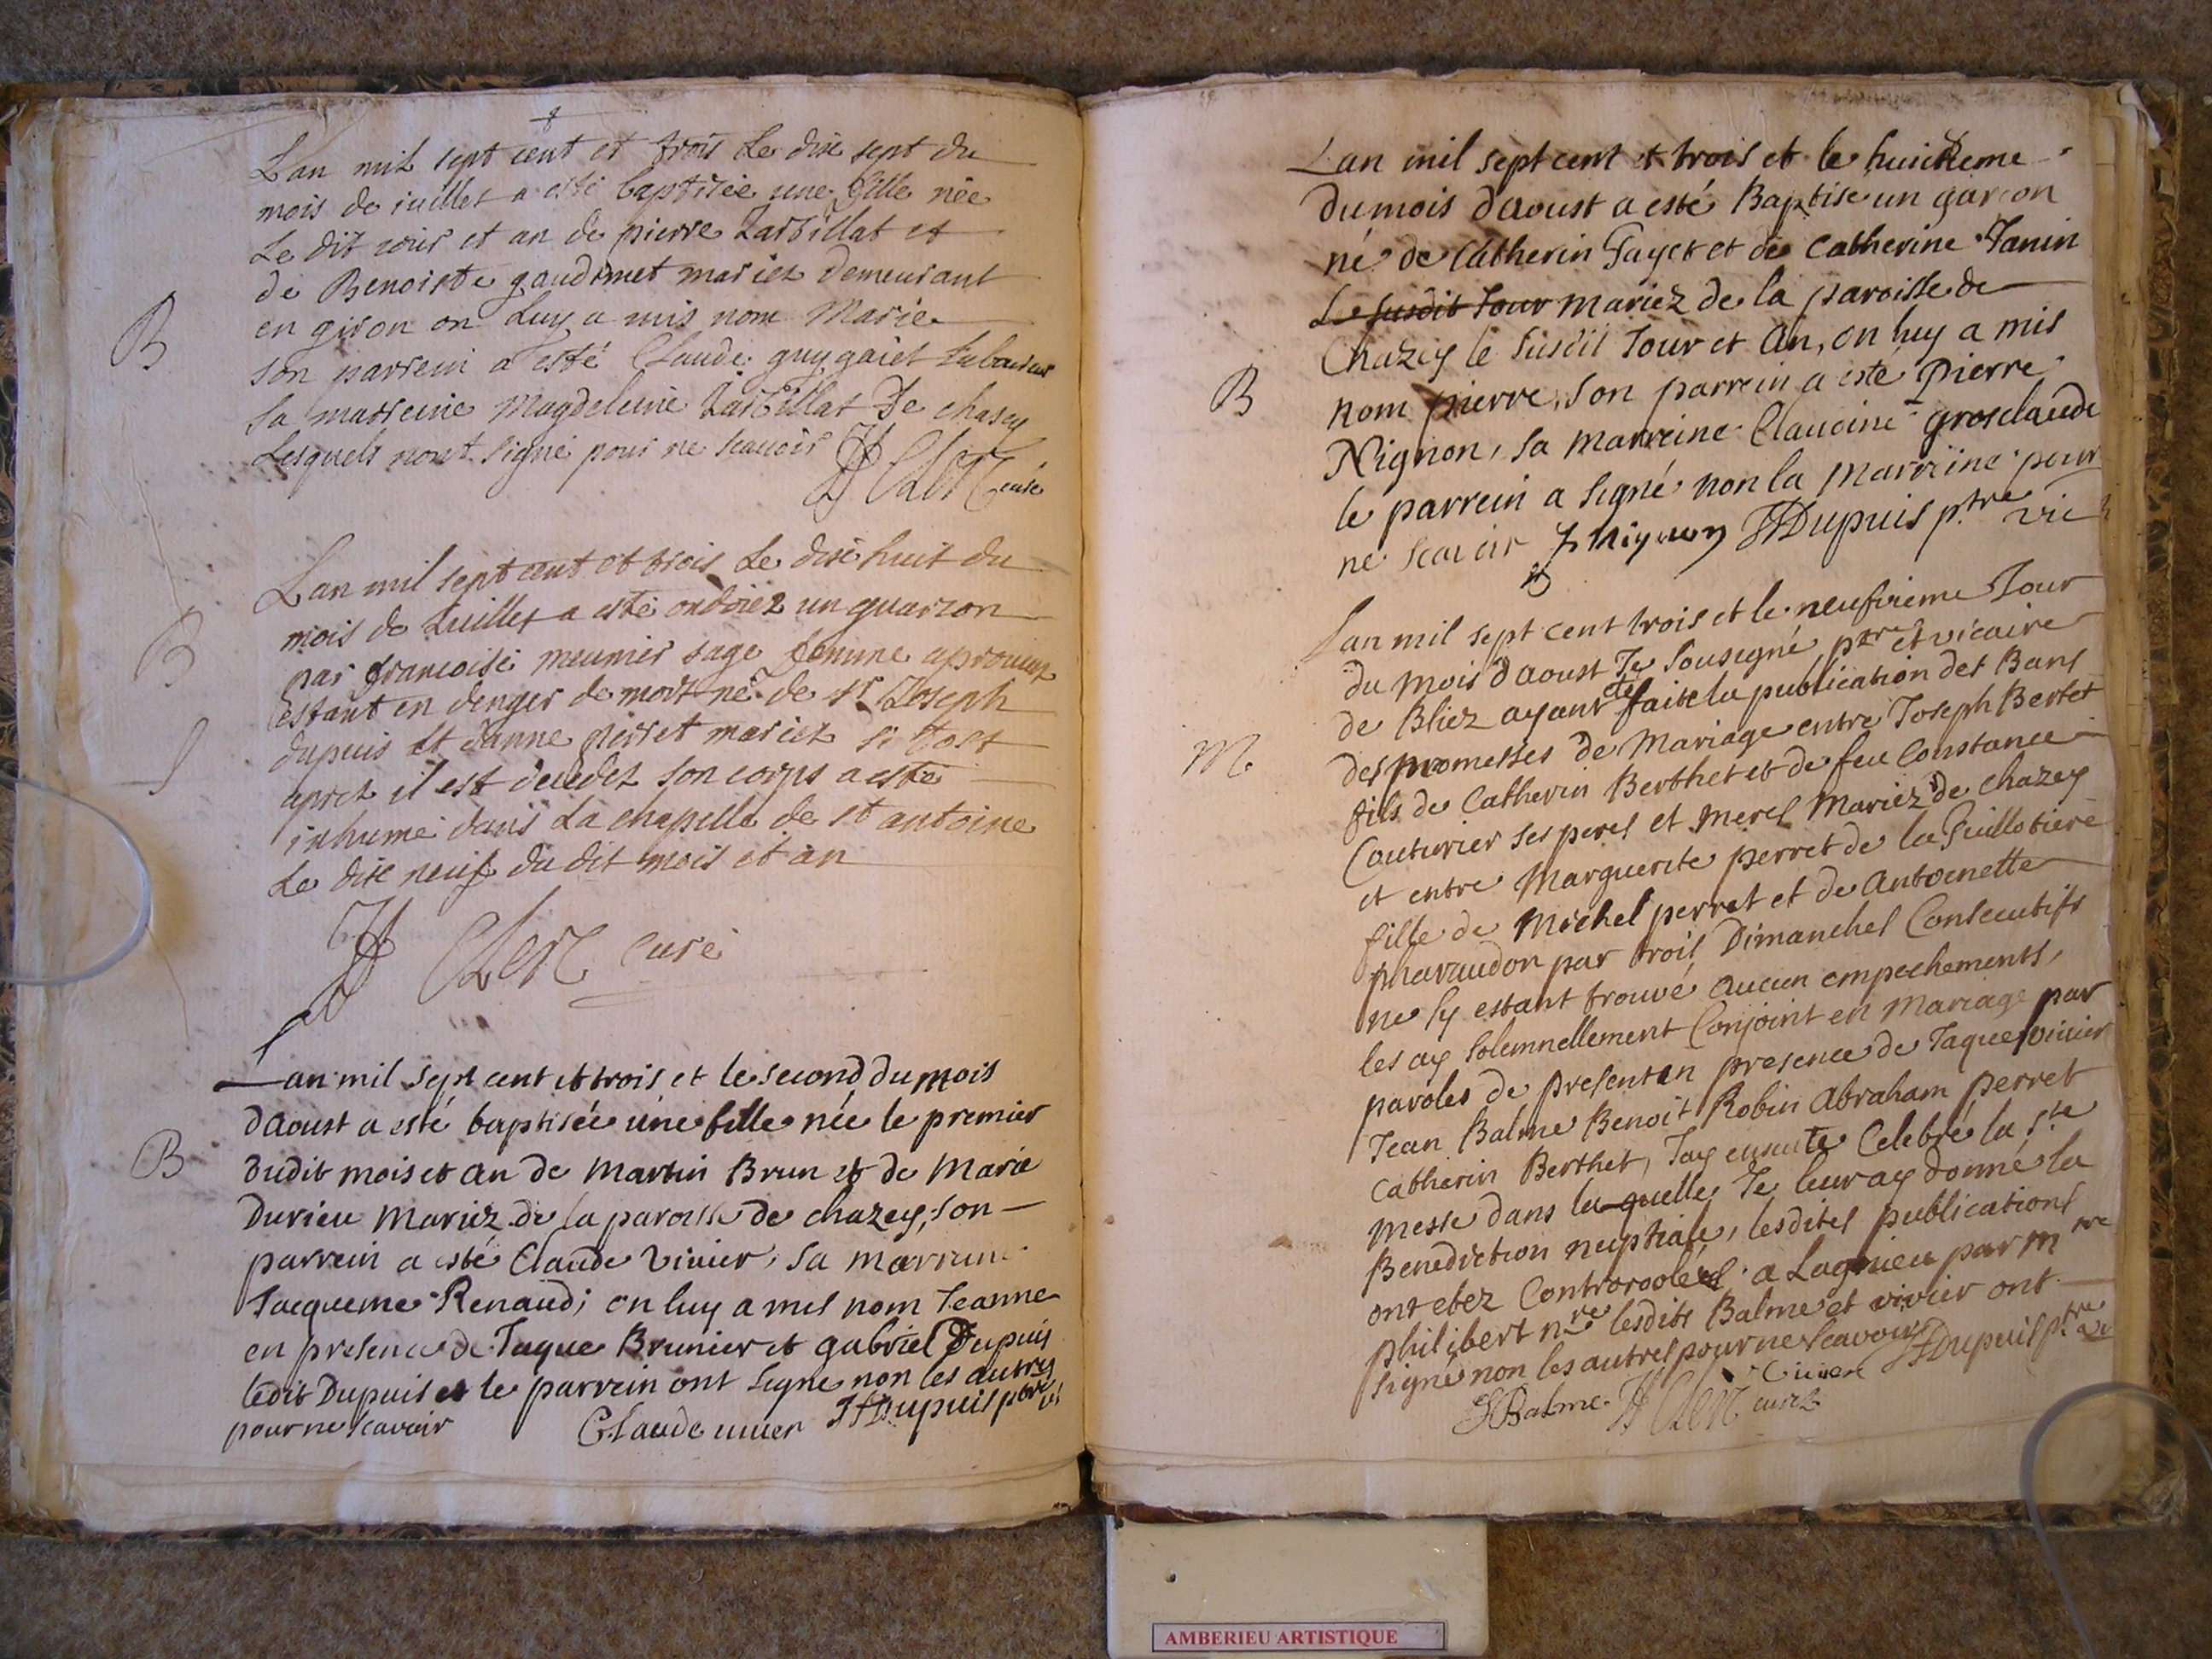 Lan mil sept cent et trois Le dixe sept du
mois de iuillet a esté baptisée une fille née
Le dit iour et an de pierre Larbillat et
de Benoiste gaudimet mariez demeurant
en giron on Luy a mis nom Marie
son parrein a esté Claude guygaiet
B
sa marreine Magdeleine Larbillat De chasey
Lesquels nont signé pour ne scauoir
Clerc curé
Lan mil sept cent et trois Le dixe huit du
mois de Iuillet a esté ondoiez un guarzon
B
par francoise meunier sage femme aprouuez
estant en denger de mort né de sr Joseph
dupuis et Janne pirret mariez si tost
S
aprez il est decedez son corps a esté
inhumé dans La chapelle de st antoine
Le dixe neuf du dit mois et an
Clerc curé
Lan mil sept cent et trois et le second du mois
daoust a esté baptisée une fille née le premier
B
dudit mois et an de Martin Brun et de Marie
Durieu Mariez de la paroisse de chazey, son
parrein a esté Claude vivier, sa marreine
Jacqueme Renaud; on luy a mis nom Jeanne
en presence de Jaque Brunier et gabriel Dupuis
ledit Dupuis et le parrein ont signe non les autres
pour ne scavoir Claude uiuier JDupuis ptre vi
Lan mil sept cent et trois et le huictieme
du mois daoust a esté Baptise un garcon
né de Catherin Gayet et de Catherine Janin
Le susdit Jour mariez de la paroisse de
Chazey le susdit Jour et an, on luy a mis
B
nom pierre, son parrein a esté pierre
Nignon, sa marreine Claudine grosclaude
le parrein a signé non la marreine pour
ne scavoir JDupuis ptre vic
Lan mil sept cent trois et le neufvieme Jour
du mois daoust Je sousigné ptre et vicaire
de Bliez ayant été faite la publication des Bans
M
des promesses de Mariage entre Joseph Bertet
fils de Catherin Berthet et de feu Constance
Couturier ses peres et meres Mariez de chazey
et entre Marguerite perret de la Guillotiere
fille de Michel perret et de Antoinette
pharaudon par trois Dimanches Consecutifs
ne sy estant trouvé aucun empechements,
les ay solemnellement Conjoint en Mariage par
paroles de present en presence de Jaque vivier
Jean Balme Benoit Robin Abraham perret
Catherin Berthet, Jay ensuite Celebré la ste
messe dans la quelle Je leur ay donné la
Benediction nuptiale, lesdites publications
ont etez Controroolées a Lagnieu par mre
philibert nre lesdits Balme et vivier ont
signé non les autres pour ne scavoir JDupuis ptre vi
Balme Clerc curé Uiuier
AMBERIEU ARTISTIQUE